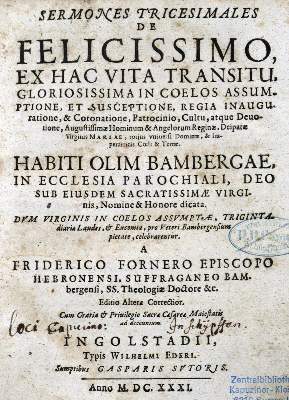 SERMONES TRICESIMALES
DE
FELICISSIMO,
EX HAC VITA TRANSITU,
GLORIOSISSIMA IN COELOS ASSUM-
PTIONE, ET SUSCEPTIONE, REGIA INAUGU-
ratione, & Coronatione, Patrocinio, Cultu, atque Devo-
tione, Augustissimæ Hominum & Angelorum Reginæ, Deiparæ
Virginis MARIAE, totius universi Dominæ, &
Cœli & Terræ.
HABITI OLIM BAMBERGAE,
IN ECCLESIA PAROCHIALI, DEO
SUB EIUSDEM SACRATISSIMÆ VIRGI-
nis, Nomine & Honore dicata.
DVM VIRGINIS IN COELOS ASSVMPTÆ, TRIGINTA
diaria Laudes, & Encomia, pro Veteri Bambergensium
pietate, celebrarentur.
A
FRIDERICO FORNERO EPISCOPO
HEBRONENSI, SUFFRAGANEO BAM-
bergensi, SS. Theologiæ Doctore &c.
Editio Altera Correctior.
Cum Gratia & Privilegio Sacræ Cæsareæ Maiestatis
ad decennium
loci Capucino:
INGOLSTADII,
Typis WILHELMI EDERI.
Sumptibus GASPARIS SVTORIS.
Anno M. DC. XXXI.
Zentralbibliothek
Kapuziner-Klos